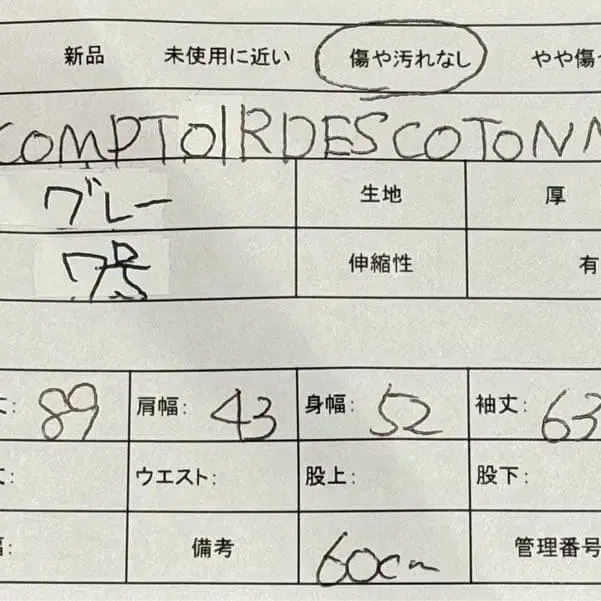 新品 未使用に近い 傷や汚れなし やや傷
COMPTOIRDESCOTONN
グレー 生地 厚
7号 伸縮性 有
丈: 89 肩幅: 43 身幅: 52 袖丈: 63
丈: ウエスト: 股上: 股下:
幅: 備考 60cm 管理番号